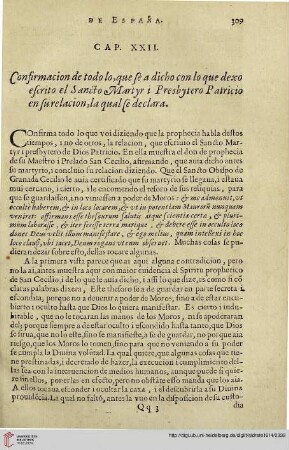 DE ESPAÑA. 309
CAP. XXII.
Confirmacion de todo lo, que se a dicho con lo que dexo
escrito el Sancto Martyr i Presbytero Patricio
en su relacion, la qual se declara.
Confirma todo lo que voi diziendo que la prophecia habla destos
tiempos, i no de otros, la relacion, que escrivio el Sancto Mar-
tyr i presbytero de Dios Patricio. En ella muestra el don de prophecia
de su Maestro i Prelado San Cecilio, afirmando, que avia dicho antes
su martyrio, i concluio su relacion diziendo. Que el Sancto Obispo de
Granada Cecilio le avia certificado que su martyrio se llegava, i estava
mui cercano, i cierto, i le encomendo el tesoro de sus reliquias, para
que se guardassen, i no viniessen a poder de Moros; & me admonuit, ut
occulte haberem, & in loco locarem, & ut in potestatem Maurorū nunquam
veniret: affirmans esse thesaurum salutis atque scientia certa, & pluri-
mum laborasse, & iter fecisse terra marique, & debere esse in occulto loco
donec Deus velit illum manifestare, & ego melius, quam intelexi in hoc
loco clausi, ubi iacet, Deum rogans ut eum observet. Muchas cosas se
pudieran desar sobre esto, dellas tocare algunas.
A la primera vista parece que ai aqui alguna contradicion, pero
no la ai, antes muestra aqui con maior evidencia el Spiritu prophetico
de San Cecilio; i de lo que avia dicho, a ssi lo que dize, es como si cō
claras palabras dixera. Este thesoro se a de guardar en parte secreta i
escondida, porque no a de venir a poder de Moros, sino a de estar escon-
dido i oculto hasta que Dios lo quiera manifestar. Es cierto i indu-
bitable, que no lo tocaran las manos de los Moros, ni se apoderaran
del; porque siempre a de estar oculto i escondido hasta tanto, que Dios
sirva, que no lo esté, sino se manifieste, a se de guardar, no por que aia
riesgo, que los Moros lo tomen, sino para que no venga a su poder
se cumpla la Divina volūtad. La qual quiere, que algunas cosas que tie-
ne prestinadas, i decretado de hazer, la execucion i cumplimiento de-
llas sea con la intervencion de medios suaves, sin que en esto aia con-
tingencia, ponerlas en efecto, pero no obstāte esso manda que los aia.
A ellos toca su esconder i ocultar la cosa, i guardarla a su Divina
providēcia. La qual no faltó, antes la vso en la disposicion de su custo-
Qq 3 dia
http://digi.ub.uni-heidelberg.de/diglit/aldrete1614/0339